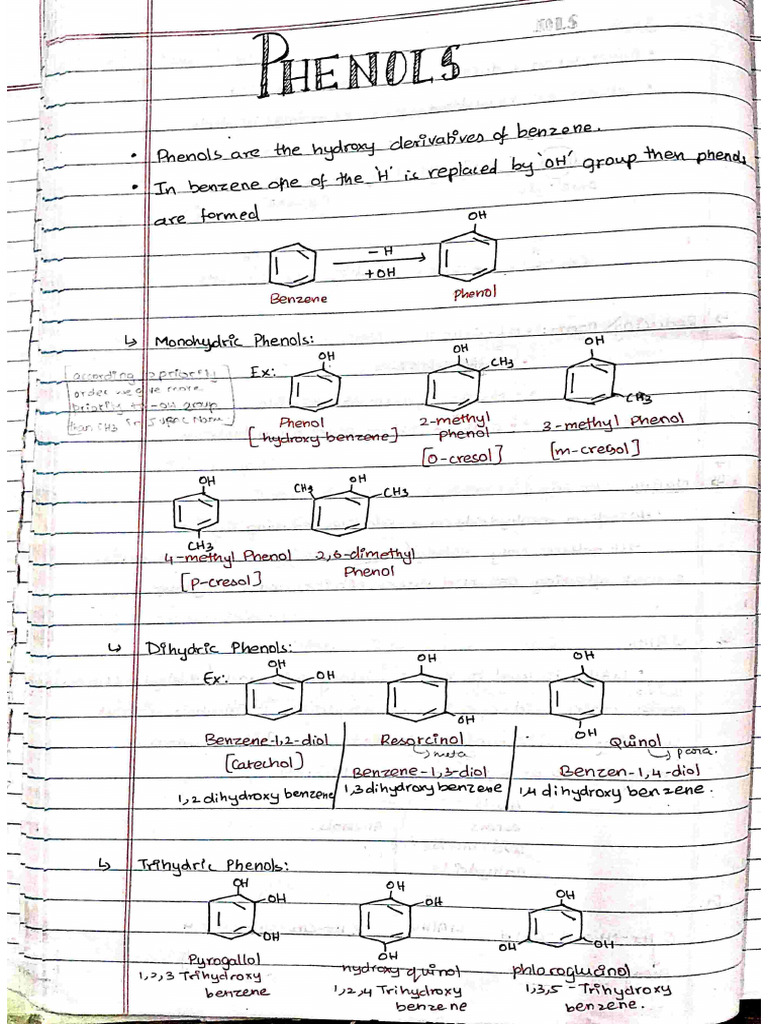 PHENOLS
• Phenols are the hydroxy derivatives of benzene.
• In benzene one of the 'H' is replaced by 'OH' group then phenols
are formed
OH
-H
+OH
Benzene
Phenol
↳ Monohydric Phenols:
according priority
order we give more
priority -OH group
than CH3 in
Ex:
OH
OH
CH3
OH
CH3
Phenol
[hydroxy benzene]
2-methyl
phenol
[O-cresol]
3-methyl Phenol
[m-cresol]
OH
CH3
CH3
OH
CH3
4-methyl Phenol
[p-cresol]
2,6-dimethyl
Phenol
↳ Dihydric Phenols:
Ex:
OH
OH
OH
OH
OH
OH
Benzene-1,2-diol
[catechol]
1,2 dihydroxy benzene
Resorcinol
↳ meta
Benzene-1,3-diol
1,3 dihydroxy benzene
Quinol
↳ para.
Benzen-1,4-diol
1,4 dihydroxy benzene.
↳ Trihydric Phenols:
OH
OH
OH
OH
OH
OH
OH
OH
OH
Pyrogallol
1,2,3 Trihydroxy
benzene
hydroxy quinol
1,2,4 Trihydroxy
benzene
phloroglucinol
1,3,5 - Trihydroxy
benzene.